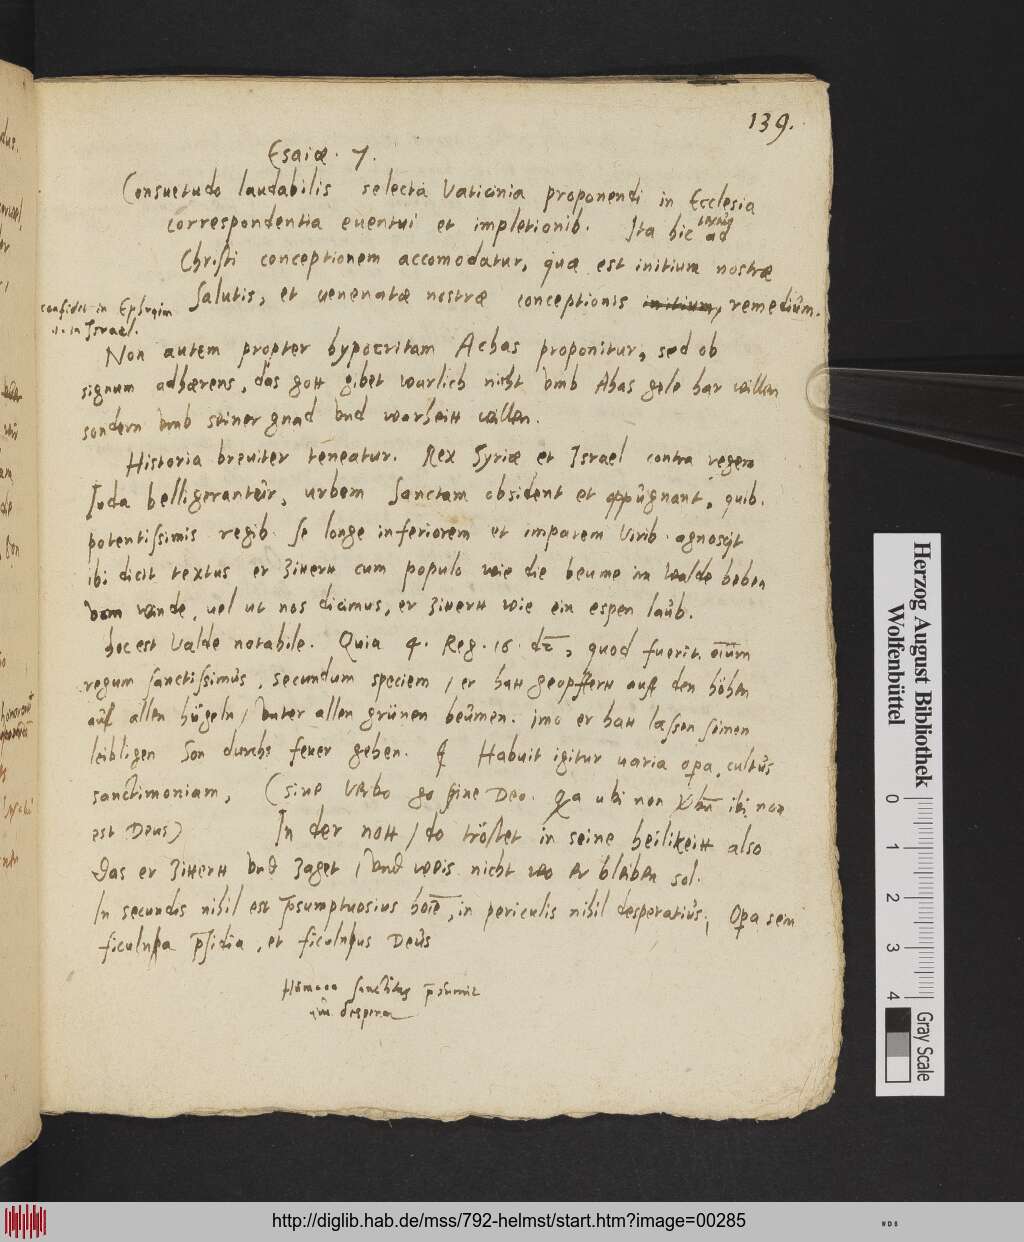 139.
Esaiæ. 7.
Consuetudo laudabilis selecta Vaticinia proponendi in Ecclesia
correspondentia euentui et impletionib. Ita hic textus ad
Christi conceptionem accomodatur, quæ est initium nostræ
Salutis, et uenenatæ nostræ conceptionis initium, remedium.
confidit in Ephraim
Israel.
Non autem propter hypocritam Achas proponitur, sed ob
signum adhærens, das gott gibet warlich nicht vmb Ahas gele har willen
sondern vmb seiner gnad vnd warheitt willen.
Historia breuiter teneatur. Rex Syriæ et Israel contra regem
Iuda belligerantur, urbem Sanctam obsident et oppugnant, quib.
potentissimis regib. se longe inferiorem et imparem virib. agnoscit
ibi dicit textus er zittertt cum populo wie die beume im walde beben
vom winde, uel ut nos dicimus, er zittertt wie ein espen laub.
hoc est valde notabile. Quia 4. Reg. 16. dr̄, quod fuerit oīum
regum sanctissimus, secundum speciem / er hatt geopffertt auff den höhen
auff allen hügeln / vnter allen grünen beumen. imo er hatt lassen seinen
leibligen Son durchs feuer gehen. Habuit igitur uaria opa, cultus
sanctimoniam, (sine Verbo go sine Deo. Qa ubi non Vbū ibi non
est Deus) In der nott / do tröstet in seine heilikeitt also
Das er zittertt vnd zaget / vnd weis nicht wo er bleiben sol.
In secundis nihil est p̄sumptuosius hoīe, in periculis nihil desperatius, Opa sem
ficulnea p̄sidia, et ficulneus Deus
Humana sanctitas p̄sumit
desperat
http://diglib.hab.de/mss/792-helmst/start.htm?image=00285
Herzog August Bibliothek
Wolfenbüttel
0 1 2 3 4
Gray Scale